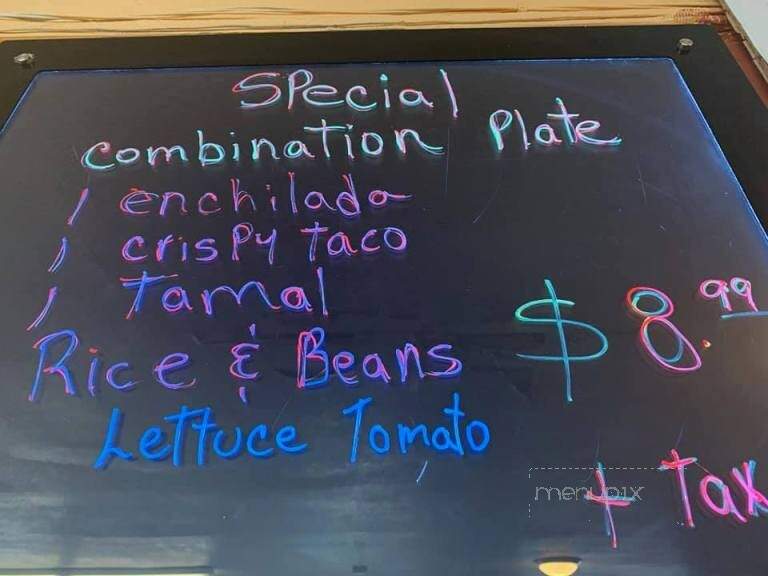 Special
Combination Plate
1 enchilada
1 crispy taco
1 Tamal
Rice & Beans
Lettuce Tomato
$8.99
+ Tax
menupix